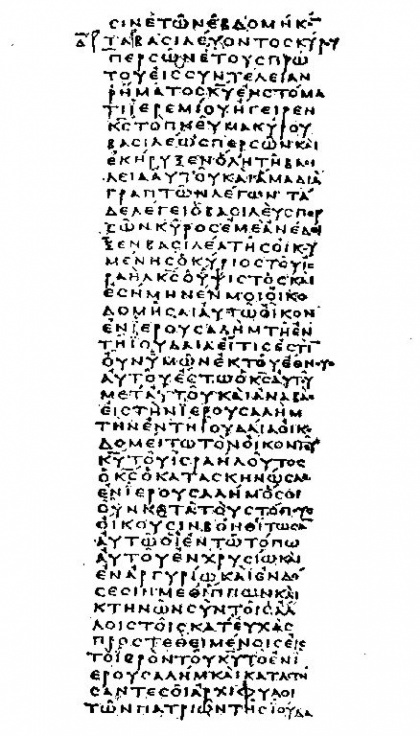 ϹΙΝΕΤΩΝΕΒΔΟΜΗΚ̅
ΤΑΒΑϹΙΛΕΥΟΝΤΟϹΚΥΡΟΥ
ΠΕΡϹΩΝΕΤΟΥϹΠΡΩ
ΤΟΥΕΙϹϹΥΝΤΕΛΕΙΑΝ
ΡΗΜΑΤΟϹΚ̅Υ̅ΕΝϹΤΟΜΑ
ΤΙΙΕΡΕΜΙΟΥΗΓΕΙΡΕΝ
Κ̅Ϲ̅ΤΟΠΝΕΥΜΑΚΥΡΟΥ
ΒΑϹΙΛΕΩϹΠΕΡϹΩΝΚΑΙ
ΕΚΗΡΥΞΕΝΟΛΗΤΗΒΑϹΙ
ΛΕΙΑΑΥΤΟΥΚΑΙΑΜΑΔΙΑ
ΓΡΑΠΤΩΝΛΕΓΩΝΤΑ
ΔΕΛΕΓΕΙΟΒΑϹΙΛΕΥϹΠΕΡ
ϹΩΝΚΥΡΟϹΕΜΕΑΝΕΔΕΙ
ΞΕΝΒΑϹΙΛΕΑΤΗϹΟΙΚΟΥ
ΜΕΝΗϹΟΚΥΡΙΟϹΤΟΥΙϹ
ΡΑΗΛΚ̅Ϲ̅ΟΥΨΙϹΤΟϹΚΑΙ
ΕϹΗΜΗΝΕΝΜΟΙΟΙΚΟ
ΔΟΜΗϹΑΙΑΥΤΩΟΙΚΟΝ
ΕΝΙΕΡΟΥϹΑΛΗΜΤΗΕΝ
ΤΗΙΟΥΔΑΙΑΕΙΤΙϹΕϹΤΙ̅
ΟΥΝΥΜΩΝΕΚΤΟΥΕΘΝΟΥϹ
ΑΥΤΟΥΕϹΤΩΟΚ̅Ϲ̅ΑΥΤΟΥ
ΜΕΤΑΥΤΟΥΚΑΙΑΝΑΒΑϹ
ΕΙϹΤΗΝΙΕΡΟΥϹΑΛΗΜ
ΤΗΝΕΝΤΗΙΟΥΔΑΙΑΟΙΚΟ
ΔΟΜΕΙΤΩΤΟΝΟΙΚΟΝΤΟΥ
Κ̅Υ̅ΤΟΥΙϹΡΑΗΛΟΥΤΟϹ
ΟΚ̅Ϲ̅ΟΚΑΤΑϹΚΗΝΩϹΑϹ
ΕΝΙΕΡΟΥϹΑΛΗΜΟϹΟΙ
ΟΥΝΚΑΤΑΤΟΥϹΤΟΠΟΥϹ
ΟΙΚΟΥϹΙΝΒΟΗΘΙΤΩϹΑ̅
ΑΥΤΩΟΙΕΝΤΩΤΟΠΩ
ΑΥΤΟΥΕΝΧΡΥϹΙΩΚΑΙ
ΕΝΑΡΓΥΡΙΩΚΑΙΕΝΔΟ
ϹΕϹΙΝΜΕΘΙΠΠΩΝΚΑΙ
ΚΤΗΝΩΝϹΥΝΤΟΙϹΑΛ
ΛΟΙϹΤΟΙϹΚΑΤΕΥΧΑϹ
ΠΡΟϹΤΕΘΕΙΜΕΝΟΙϹΕΙϹ
ΤΟΙΕΡΟΝΤΟΥΚ̅Υ̅ΤΟΕΝΙ
ΕΡΟΥϹΑΛΗΜΚΑΙΚΑΤΑϹΤΗ
ϹΑΝΤΕϹΟΙΑΡΧΙΦΥΛΟΙ
ΤΩΝΠΑΤΡΙΩΝΤΗϹΙΟΥΔΑ